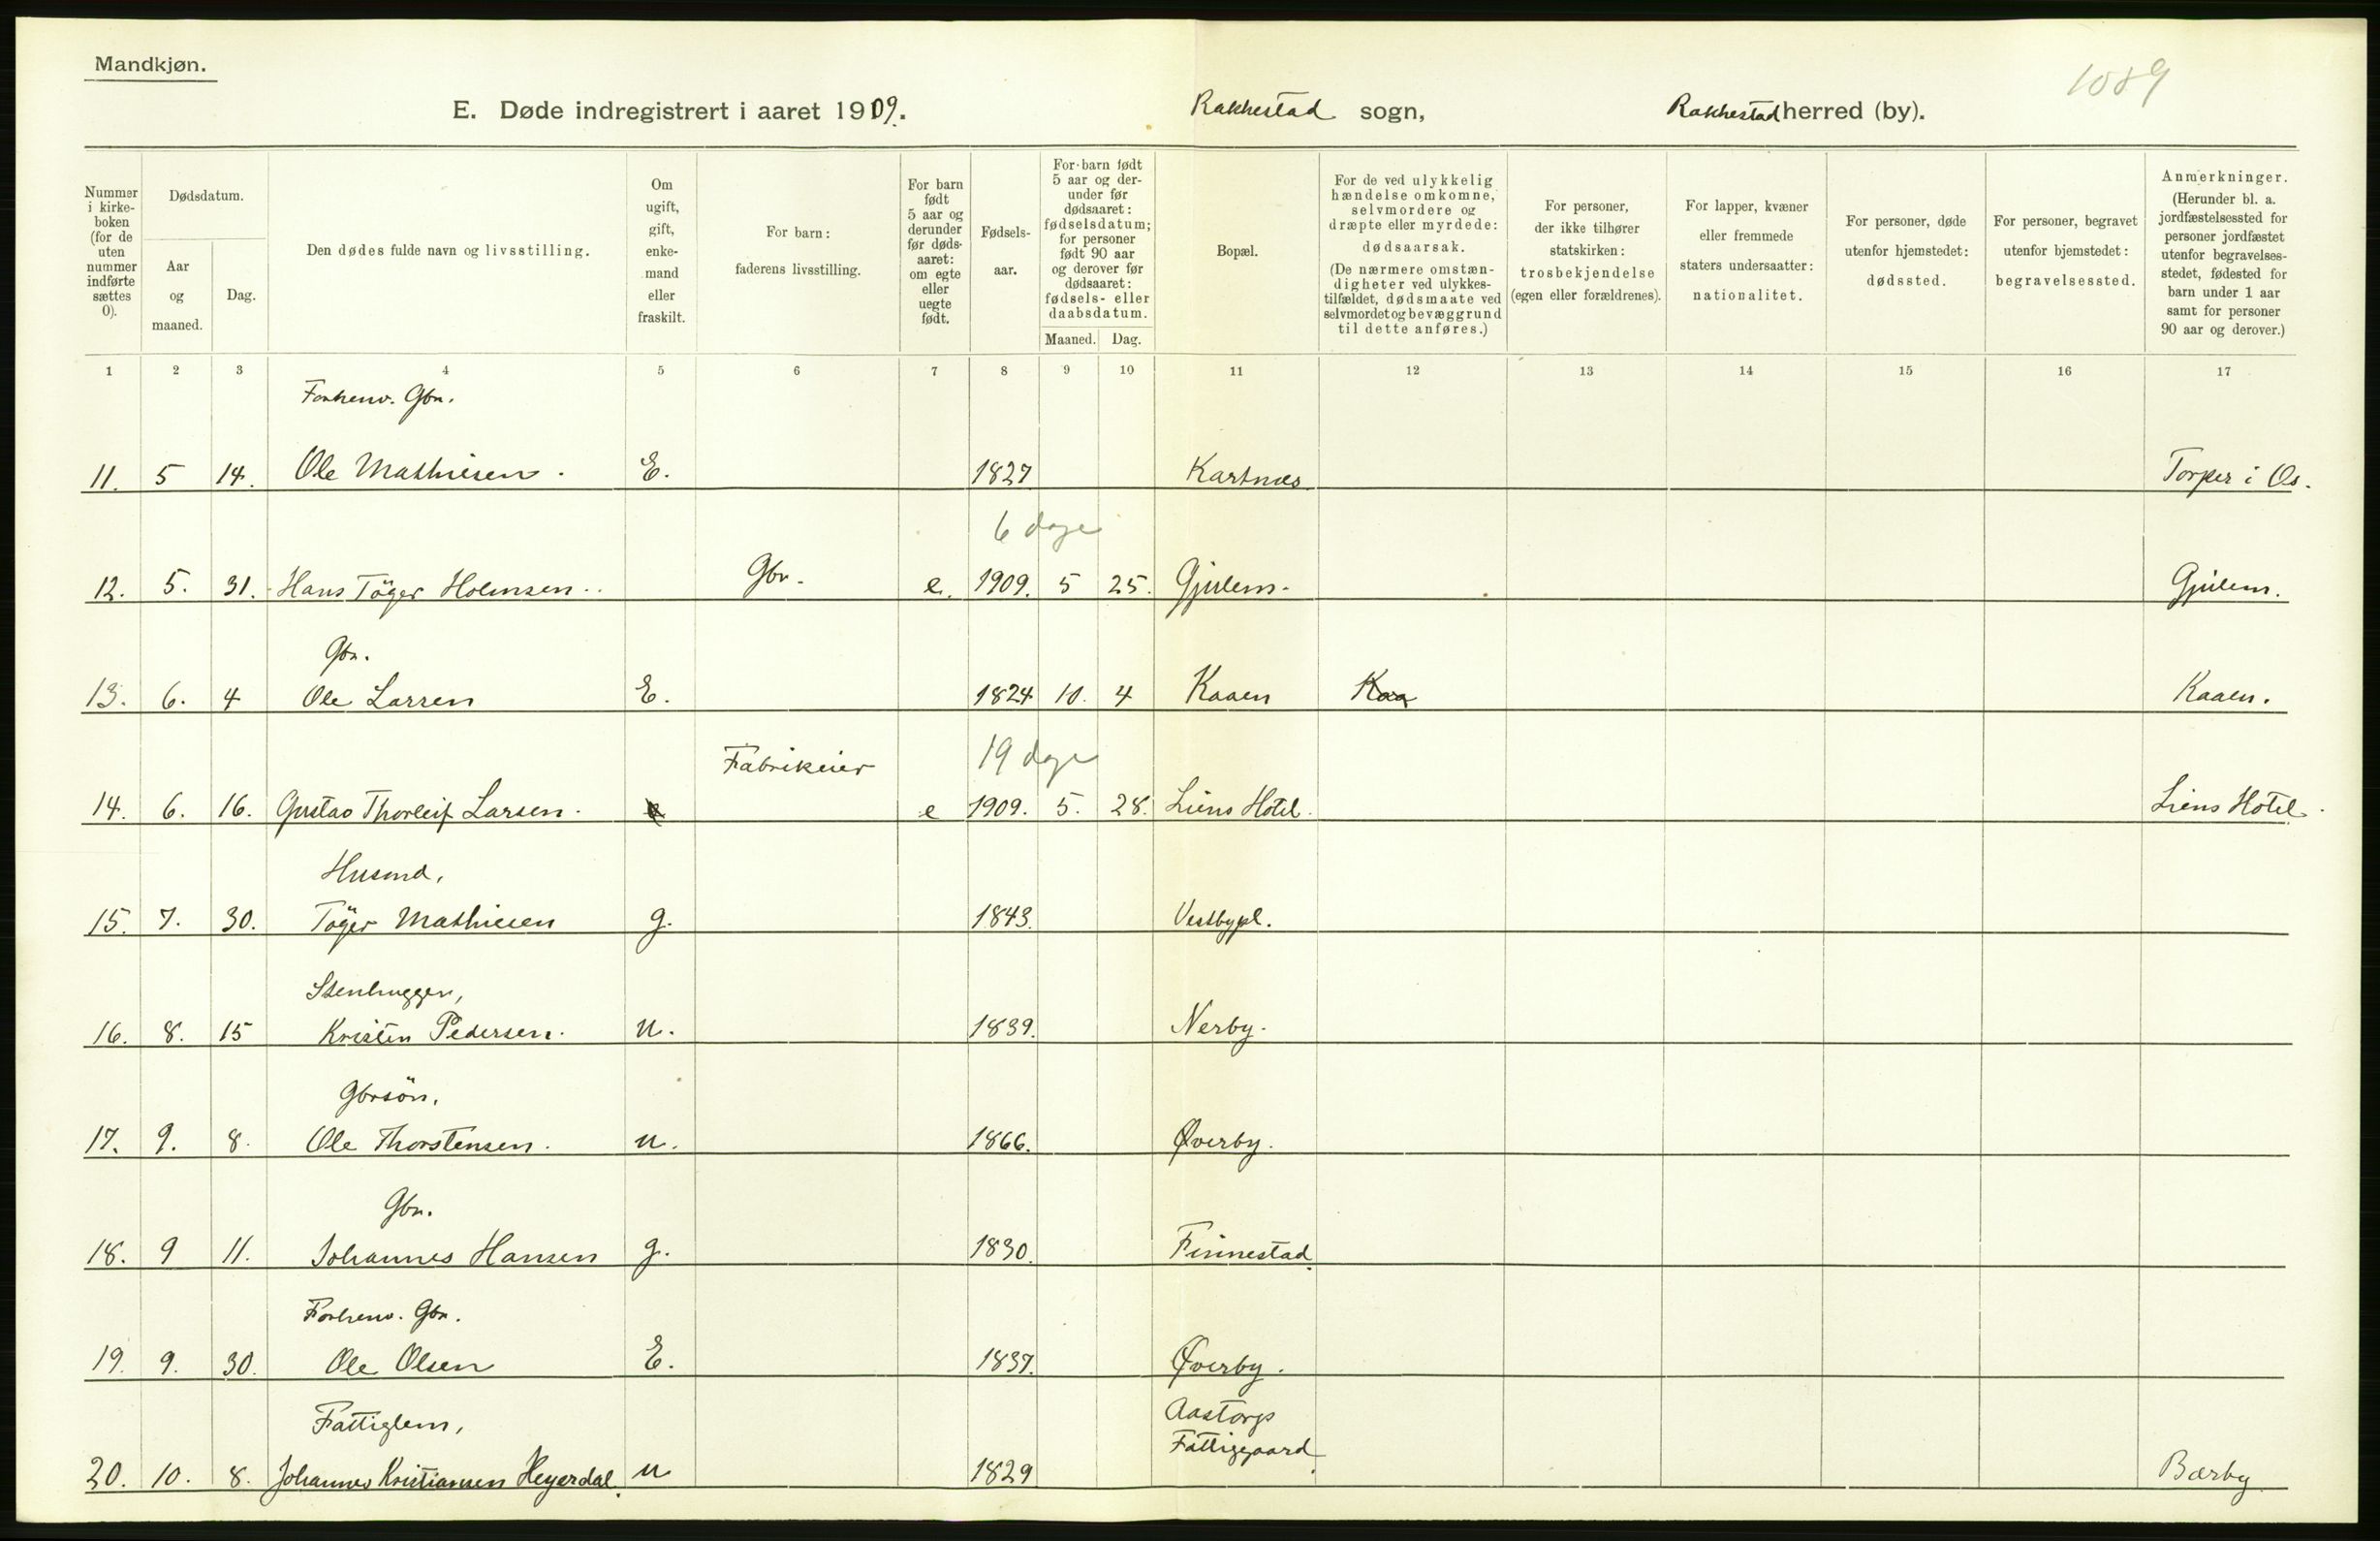 Mandkjøn.
1089
E. Døde indregistrert i aaret 1909. Rakkestad sogn, Rakkestad herred (by).
Nummer i kirke- boken (for de uten nummer indførte sættes 0).
Dødsdatum.
Aar og maaned.
Dag.
Den dødes fulde navn og livsstilling.
Om ugift, gift, enke- mand eller fraskilt.
For barn: faderens livsstilling.
For barn født 5 aar og derunder før døds- aaret: om egte eller uegte født.
Fødsels- aar.
For barn født 5 aar og der- under før dødsaaret: fødselsdatum; for personer født 90 aar og derover før dødsaaret: fødsels- eller daabsdatum.
Maaned. Dag.
Bopæl.
For de ved ulykkelig hændelse omkomne, selvmordere og dræpte eller myrdede: dødsaarsak. (De nærmere omstæn- digheter ved ulykkes- tilfældet, dødsmaate ved selvmordet og bevæggrund til dette anføres.)
For personer, der ikke tilhører statskirken: trosbekjendelse (egen eller forældrenes).
For lapper, kvæner eller fremmede staters undersaatter: nationalitet.
For personer, døde utenfor hjemstedet: dødssted.
For personer, begravet utenfor hjemstedet: begravelsessted.
Anmerkninger. (Herunder bl. a. jordfæstelsessted for personer jordfæstet utenfor begravelses- stedet, fødested for barn under 1 aar samt for personer 90 aar og derover.)
1 2 3 4 5 6 7 8 9 10 11 12 13 14 15 16 17
Forhenv. Gbr.
11. 5 14. Ole Mathiesen. E. 1827 Kartnes Torper i Os.
6 dage
12. 5. 31. Hans Töger Holmsen. Gbr. e. 1909. 5 25. Gjulem. Gjulem.
Gbr.
13. 6. 4 Ole Larsen E. 1824 10. 4 Kaaen Kaa Kaaen.
Fabrikeier 19 dage
14. 6. 16. Gustav Thorleif Larsen. e 1909. 5. 28. Liens Hotel. Liens Hotel.
Husmd,
15. 7. 30. Töger Mathiesen g. 1843. Vestbypl.
Stenhugger,
16. 8. 15 Kristen Pedersen. u. 1839. Nerby.
Gbrsön,
17. 9. 8. Ole Thorstensen. u. 1866. Øverby.
Gbr.
18. 9 11. Johannes Hansen g. 1830. Finnestad.
Forhenv. Gbr.
19. 9. 30. Ole Olsen E. 1837. Øverby.
Fattiglem, Aastorp
Fattiggaard.
20. 10. 8. Johannes Kristiansen Heyerdal. u 1829 Bærby